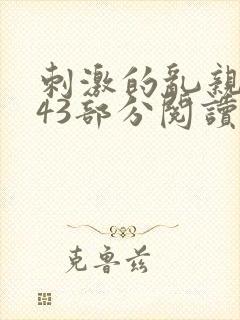 刺激的亂親
43部分閱讀
克魯茲